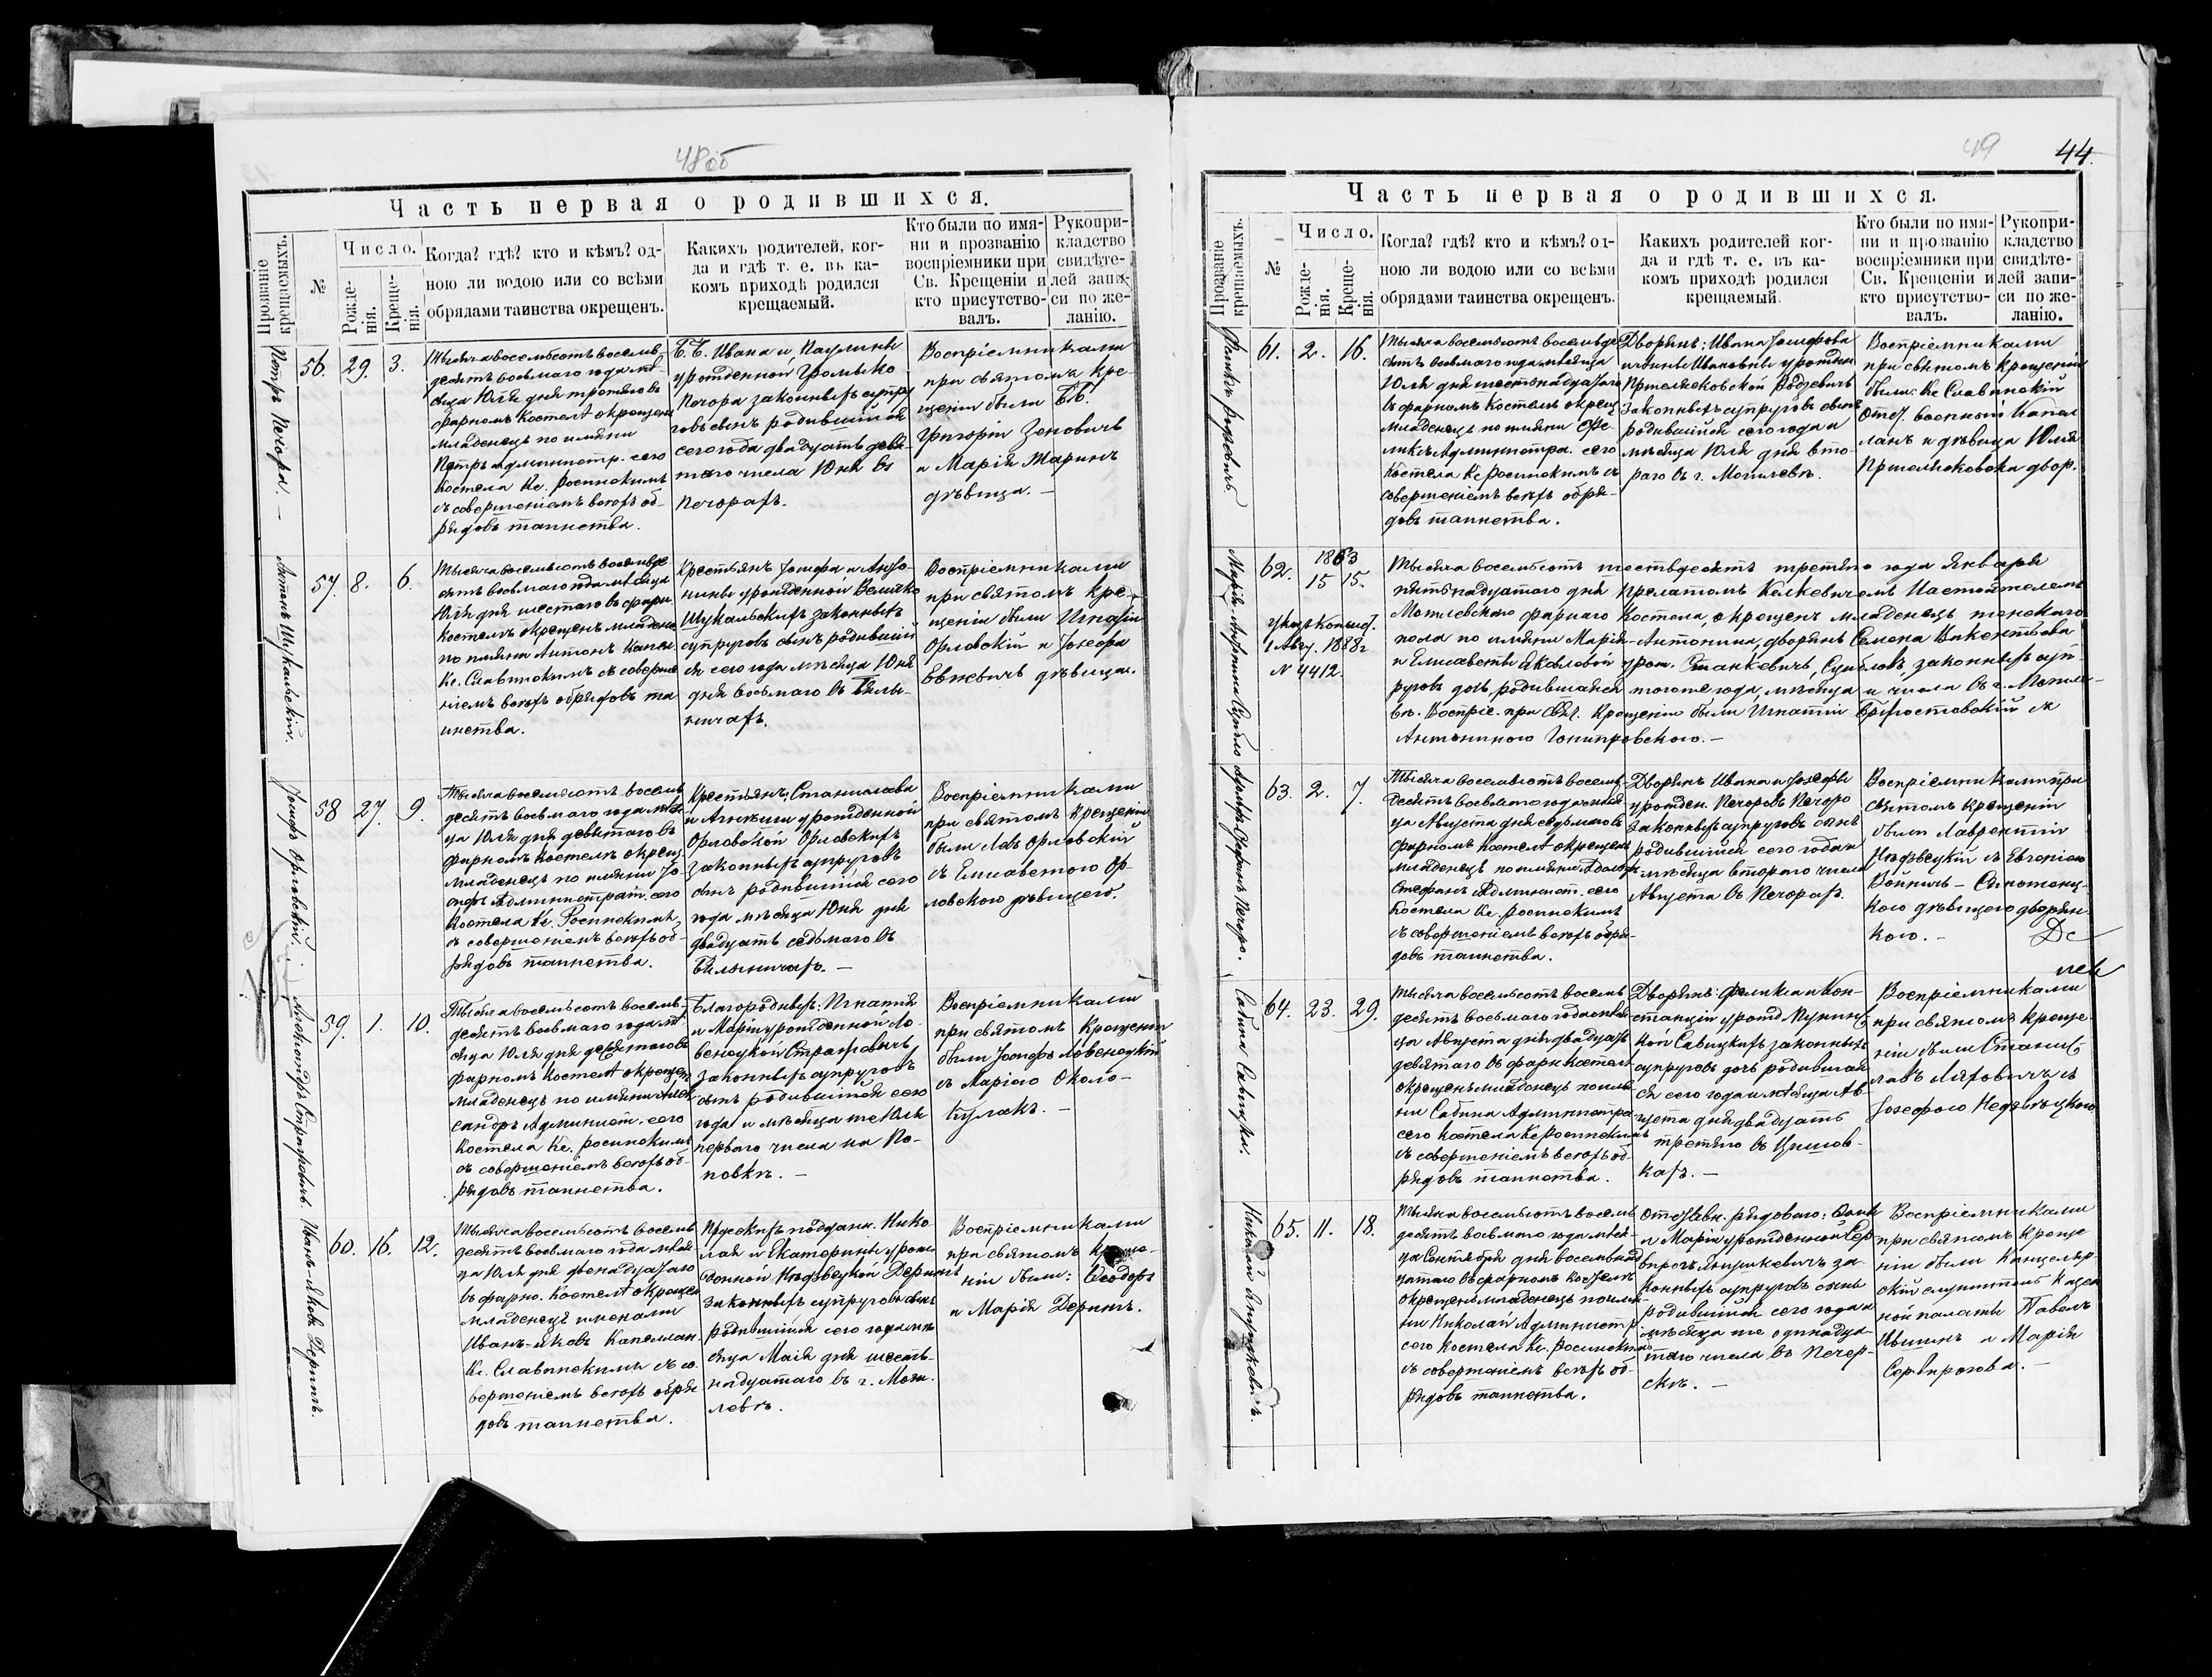 48об
Часть первая о родившихся.
Прозваніе
крещаемыхъ.
№
Число.
Рожде-
нія.
Креще-
нія.
Когда? гдѣ? кто и кѣмъ? од-
ною ли водою или со всѣми
обрядами таинства окрещенъ.
Какихъ родителей, ког-
да и гдѣ т. е. въ ка-
комъ приходѣ родился
крещаемый.
Кто были по имя-
ни и прозванію
воспріемники при
Св. Крещеніи и
кто присутство-
валъ.
Рукопри-
кладство
свидѣте-
лей запи-
си по же-
ланію.
Петръ Печора.
56. 29. 3.
Тысяча восемьсотъ восемь-
десятъ восьмаго года мѣ-
сяца Юля дня третяго въ
фарномъ Костелѣ окрещенъ
младенецъ по имяни
Петръ Администр. сего
Костела Кс. Росинскимъ
съ совершеніемъ всѣхъ об-
рядовъ таинства.
Б. Б. Ивана и Паулины
урожденной Громыко
Печора законныхъ супру
говъ сынъ родившійся
сего года двадцать девя-
таго числа Юня въ
Печорахъ.
Воспріемниками
при святомъ кре
щеніи были Б.Б.
Григорій Зеновичъ
и Марія Маринъ
дѣвица. –
Антонъ Шукальскій.
57. 8. 6.
Тысяча восемьсотъ восемьде
сятъ восьмаго года мѣсяца
Юля дня шестаго въ фарн
костелѣ окрещенъ младене
по имяни Антонъ Капел
Кс. Славинскимъ съ соверше
ніемъ всѣхъ обрядовъ та
инства.
Крестьянъ Іосифа и Анто-
нины урожденной Величко
Шукальскихъ законныхъ
супруговъ сынъ родившій
ся сего года мѣсяца Юня
дня восьмаго въ Бялы-
ничахъ.
Воспріемниками
при святомъ кре-
щеніи были Игнатій
Орловскій и Іозефа
дѣвица.
Іосифъ Орловскій.
58 27. 9.
Тысяча восемьсотъ восемь
десятъ восьмаго года мѣся
ца Юля дня девятаго въ
фарномъ Костелѣ окрещ.
младенецъ по имяни Іо-
сифъ Администрат. сего
Костела Кс. Росинскимъ
съ совершеніемъ всѣхъ об-
рядовъ таинства.
Крестьянъ: Станислава
и урожденной
Орловской Орловскихъ
законныхъ супруговъ
сынъ родившійся сего
года мѣсяца Юня дня
двадцать седьмаго въ
Бялыничахъ. –
Воспріемниками
при святомъ крещеніи
были Левъ Орловскій
съ Елисаветою Ор-
ловскою дѣвицею.
Александръ Страхровичъ.
59. 1. 10.
Тысяча восемьсотъ восемь-
десятъ восьмаго года мѣ
сяца Юля дня десятаго въ
фарномъ Костелѣ окрещен
младенецъ по имяни Алек
сандръ Админист. сего
Костела Кс. Росинскимъ
съ совершеніемъ всѣхъ об-
рядовъ таинства.
Благородныхъ: Игнатія
и Маріи урожденной Ло-
венецкой
законныхъ супруговъ
сынъ родившійся сего
года и мѣсяца же Юля
перваго числа на По-
повкѣ. –
Воспріемниками
при святомъ Крещеніи
были Іосифъ Ловенецкій
съ Маріею Около-
Кулакъ. –
Иванъ-Яковъ Дерингъ.
60. 16. 12.
Тысяча восемьсотъ восемь
десятъ восьмаго года мѣся
ца Юля дня двенадцатаго
въ фарн. Костелѣ окрещен
младенецъ именами
Иванъ-Яковъ Капеллан.
Кс. Славинскимъ съ со-
вершеніемъ всѣхъ обря
довъ таинства.
Прусскихъ поддан. Нико
лая и Екатерины урож-
денной Дерингъ
законныхъ супруговъ сынъ
родившійся сего года мѣ
сяца Маія дня шест-
надцатаго въ г. Моги-
левѣ.
Воспріемниками
при святомъ креще-
ніи были: Ѳеодоръ
и Марія Дерингъ.
49
44.
Часть первая о родившихся.
Прозваніе
крещаемыхъ.
№
Число.
Рожде-
нія.
Креще-
нія.
Когда? гдѣ? кто и кѣмъ? од-
ною ли водою или со всѣми
обрядами таинства окрещенъ.
Какихъ родителей ког-
да и гдѣ т. е. въ ка-
комъ приходѣ родился
крещаемый.
Кто были по имя-
ни и прозванію
воспріемники при
Св. Крещеніи и
кто присутство-
валъ.
Рукопри-
кладство
свидѣте-
лей запи-
си по же-
ланію.
61. 2. 16.
Тысяча восемьсотъ восемьде
сятъ восьмаго года мѣсяца
Юля дня шестнадцатаго
въ фарномъ Костелѣ окрещ.
младенецъ по имяни Фе-
ликсъ Администра. сего
Костела Кс Росинскимъ съ
совершеніемъ всѣхъ обря-
довъ таинства.
Дворянъ: Ивана Іосифова
и Анны Ивановны урожден
законныхъ супруговъ сынъ
родившійся сего года и
мѣсяца Юля дня вто-
раго въ г. Могилевѣ.
Воспріемниками
при святомъ крещеніи
были: Кс Славинскій
Отст. военный Капел
ланъ и дѣвица Юлія
двор.
Марія-Антонина Суцило
62. 1863
15 15.
Указъ Консист.
1 Авгу. 1888 г
N 4412.
Тысяча восемьсотъ шестьдесятъ третяго года Января
пятьнадцатаго дня прелатомъ Келкевичемъ Настоятелемъ
Могилевскаго фарнаго Костела, окрещенъ младенецъ женскаго
пола по имяни Марія-Антонина, дворянъ Семена Викентьева
и Елисаветы Яковлевой урож. Станкевичъ, законныхъ суп-
руговъ дочь, родившаяся тогоже года, мѣсяца и числа въ г. Могиле-
вѣ. Воспріе. при Свят. Крещеніи были Игнатій и
Антониною –
Адольфъ-Стефанъ Печоро.
63. 2. 7.
Тысяча восемьсотъ восемь-
десятъ восьмаго года мѣся
ца Августа дня седьмаго въ
фарномъ Костелѣ окрещенъ
младенецъ по имяни Адольфъ
Стефанъ Админист. сего
Костела Кс. Росинскимъ
съ совершеніемъ всѣхъ обря-
довъ таинства.
Дворянъ Ивана и Іозефы
урожден. Печоръ Печоро
законныхъ супруговъ сынъ
родившійся сего года и
мѣсяца втораго числа
Августа въ Печорахъ.
Воспріемниками при
святомъ крещеніи
были Лаврентій
съ Евгеніею
Войничъ-Сяноженц-
кою дѣвицею дворян-
кою. –
Сабина Савицка.
64. 23. 29.
Тысяча восемьсотъ восемь
десятъ восьмаго года мѣся
ца Августа дня двадцать
девятаго въ фарн Костелѣ
окрещенъ младенецъ по имя
ни Сабина Администра
сего Костела Кс Росинскимъ
съ совершеніемъ всѣхъ об-
рядовъ таинства.
Дворянъ: Феликса и Кон-
станціи урожд.
Савицкихъ законныхъ
супруговъ дочь родившая
ся сего года и мѣсяца Ав-
густа дня двадцать
третяго въ
кахъ. –
Воспріемниками
при святомъ креще-
ніи были Станис-
лавъ Ляховичъ съ
Іозефою
Николай Янушкевичъ.
65. 11. 18.
Тысяча восемьсотъ восемь
десятъ восьмаго года мѣся
ца Сентября дня восемьнад
цатаго въ фарномъ костелѣ
окрещенъ младенецъ по имя-
ни Николай Администр
сего Костела Кс. Росинскимъ
съ совершеніемъ всѣхъ об-
рядовъ таинства.
Отставн. рядоваго:
и Маріи урожденной
Янушкевичъ за-
конныхъ супруговъ сынъ
родившійся сего года и
мѣсяца же одинадца-
таго числа въ Печер-
скѣ. –
Воспріемниками
при святомъ креще
ніи были Канцеляр
скій служитель Казен
ной палаты Павелъ
Ившинъ и Марія